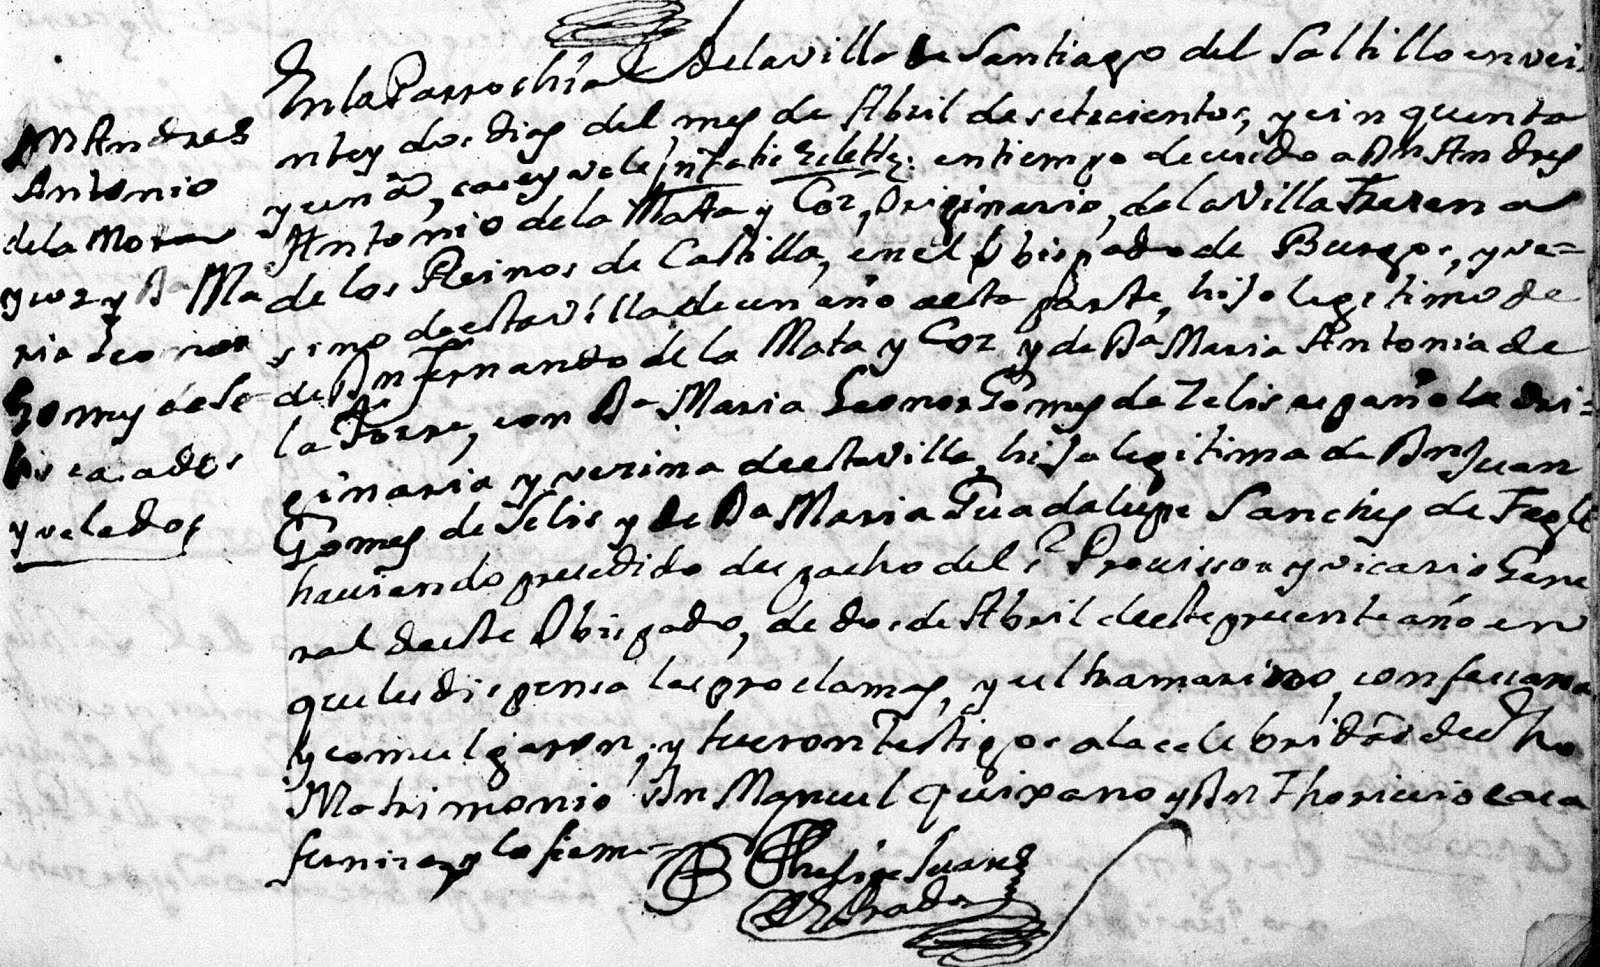 Dn Andres
Antonio
de la Mota
y coz y Da Ma
ria Leonor
Gomes de Se-
lis casados
y velados
En la Parrochial de la villa de Santiago del Saltillo en vei-
nte y dos dias del mes de Abril de setecientos, y cinquenta
y un as, case y vele Infatie Eclette. en tiempo devido a Dn Andres
Antonio de la Mata y Coz, Originario, de la Villa
de los Reinos de Castilla, en el Obispado de Burgos, y ve=
sino de esta Villa de un año a esta parte, hijo legitimo de
de Dn Fernando de la Mata y Coz y de Da Maria Antonia de
la Torre, con Da Maria Leonor Gomes de Zelis española ori=
ginaria y vezina de esta Villa, hija legitima de Dn Juan
Gomes de Selis y de Da Maria Guadalupe Sanches de Tagle
haviendo precedido despacho del Sr Provissor y vicario Gene
ral de este Obispado, de dos de Abril de este presente año en
que les dispensa las proclamas, y ultramarino, confesaron
y comulgaron, y fueron testigos a la celebridad de dho
Matrimonio Dn Manuel Quixano y Dn
y lo firme
Phelipe Suarez
Estrada